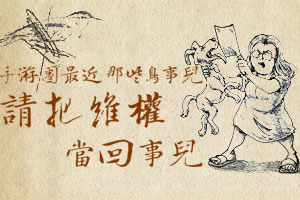 手游圈最近那些鳥事兒
請把維權
當回事兒